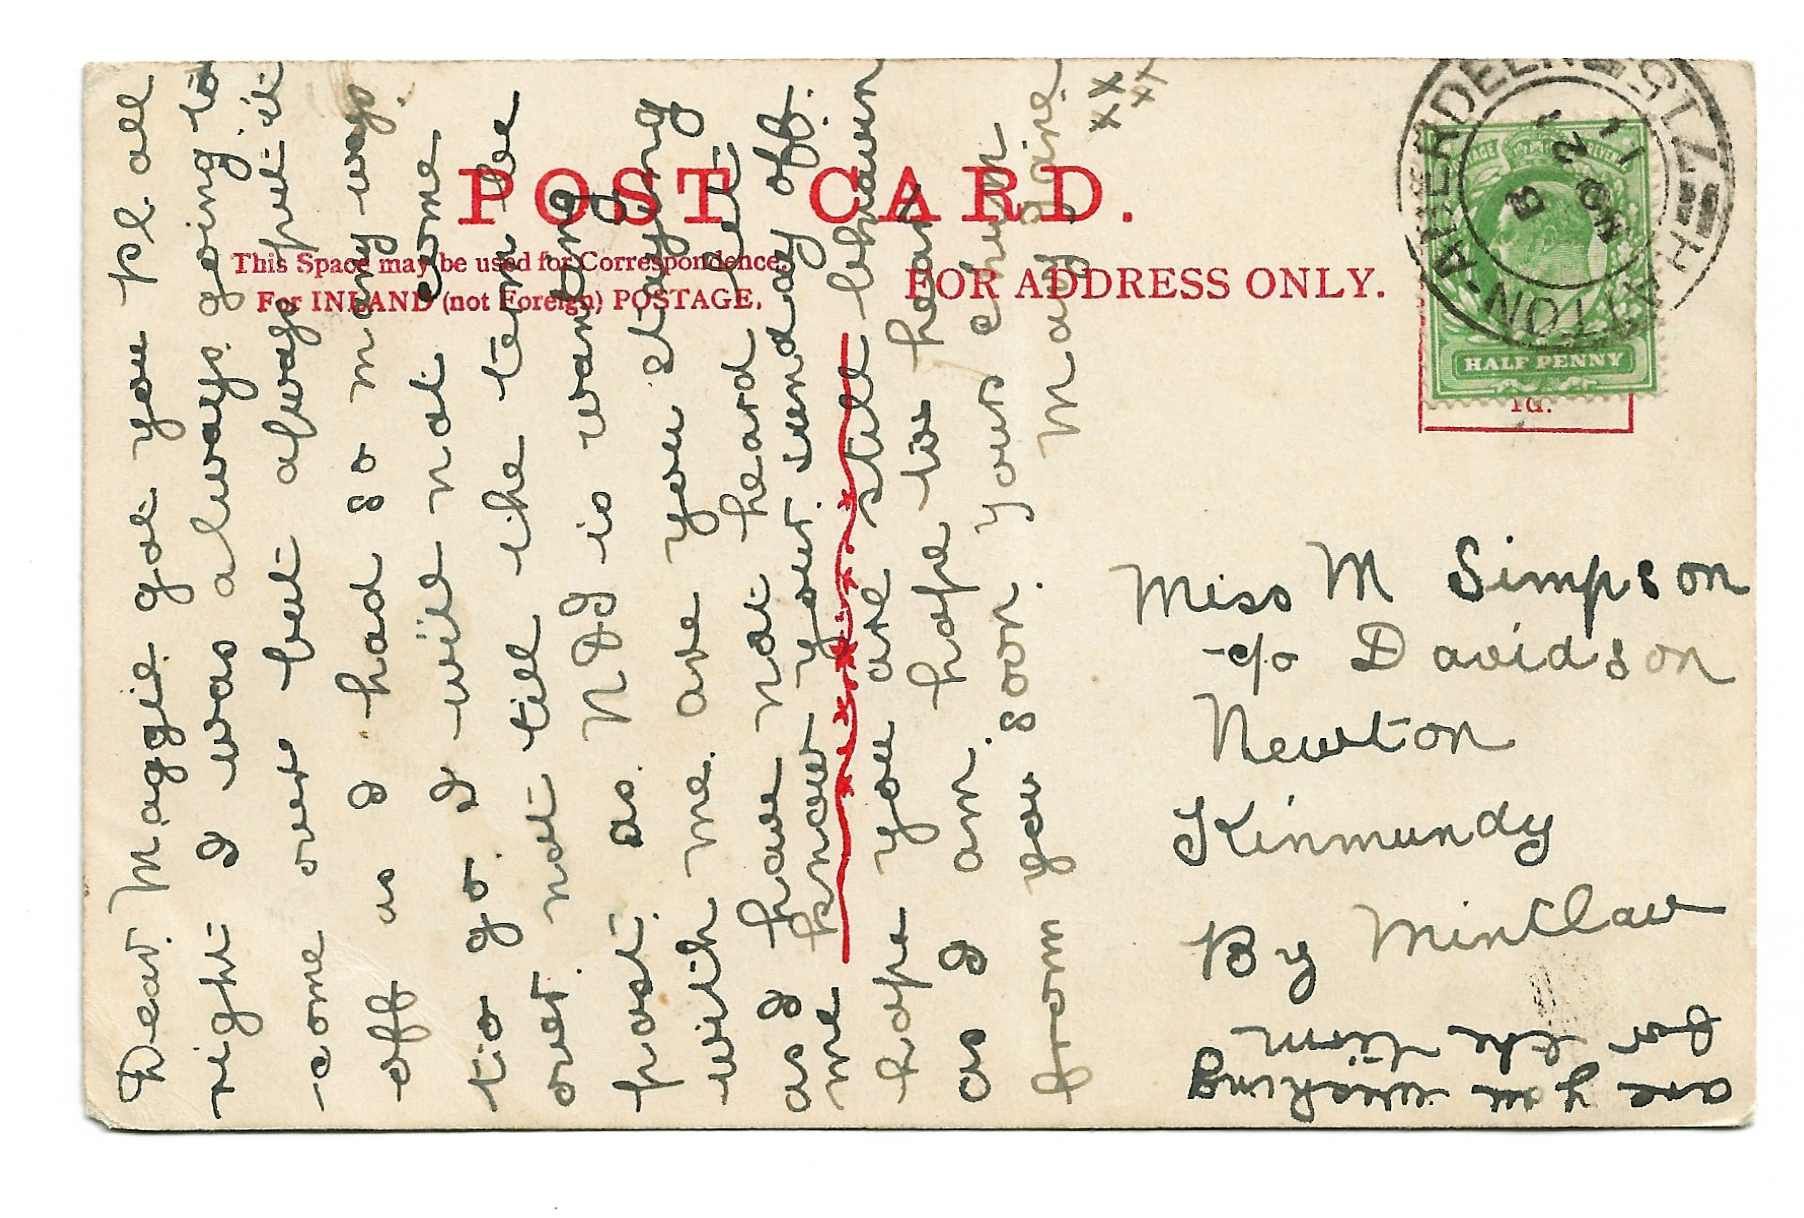 POST CARD.
This Space may be used for Correspondence.
For INLAND (not Foreign) POSTAGE.
FOR ADDRESS ONLY.
HALF PENNY
1d.
Dear. Maggie got you pl all
right I was always going to
come over but always put it
off as I had so many ways
to go. I will not come
over. not till the term be
past. as. is wanting
with me. are you staying
as I have not heard let
me know your sunday off.
hope you are still behavin
as I am. hope to hear
from you soon. yours chum
Mary Jane
xx
xx
Miss M Simpson
c/o Davidson
Newton
Kinmundy
By Mintlaw
are you wishing
for the tirm